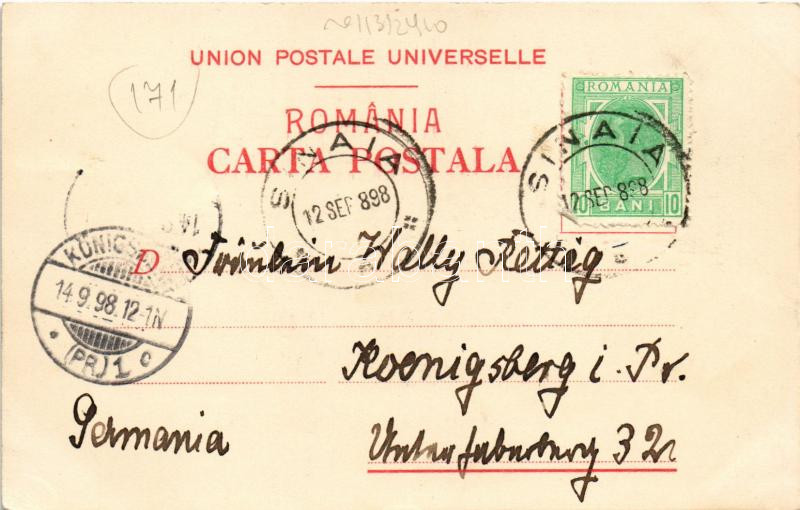 UNION POSTALE UNIVERSELLE
171
ROMÂNIA
CARTA POSTALA
ROMANIA
10 BANI 10
SINAIA
12 SEP 898
SINAIA
12 SEP 898
KÖNIGSB
14.9.98.12-1N
(PR.) 1
D Fräulein Wally Rettig
Koenigsberg i. Pr.
Germania
Unterhaberberg 32